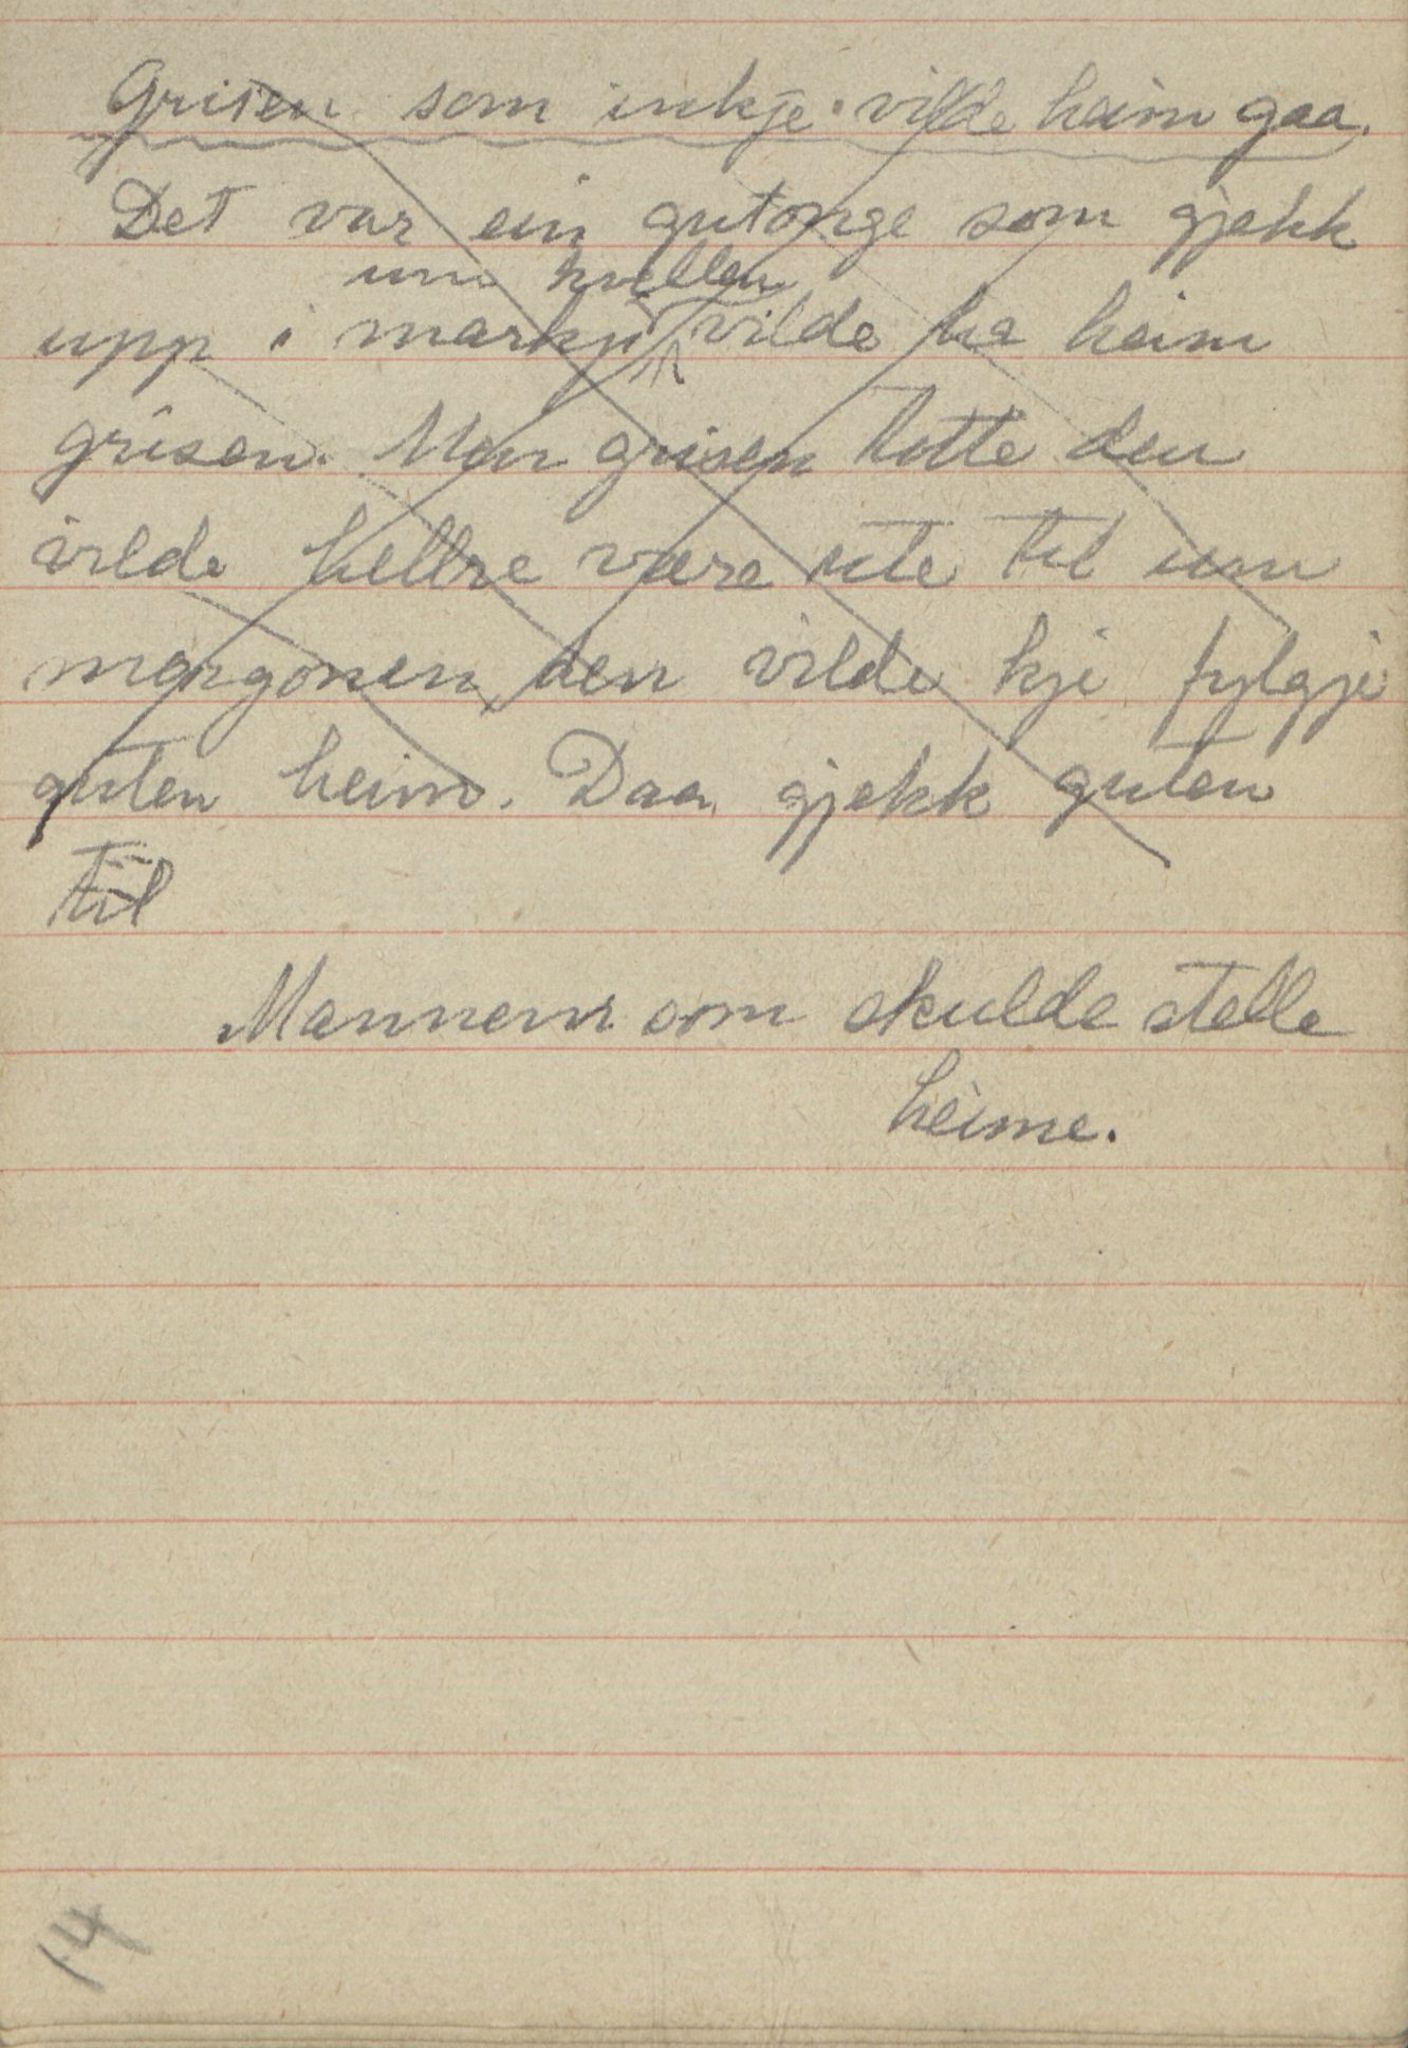 Grisen som inkje vilde heim gaa.
Det var ein gutonge som gjekk
um kvellen
upp i markji vilde ha heim
grisen. Men grisen totte den
vilde hellre være ute til um
morgonen, den vilde kje fylgje
guten heim. Daa gjekk guten
til
Mannen som skulde stelle
heime.
14